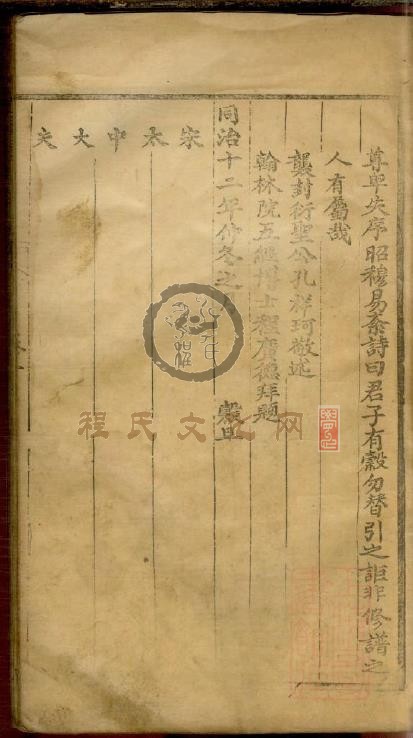 尊卑失序昭穆易紊詩曰君子有穀勿替引之詎非修譜之
人有屬哉
襲封衍聖公孔祥珂敬述
翰林院五經博士程廣德拜題
同治十二年仲冬之月　穀旦
宋太中大夫
程氏文化网